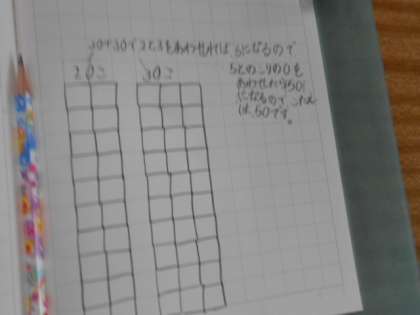 20+30で2と3をあわせれば5になるので
20こ
30こ
5とのこりの0を
あわせたら50
になるので こたえ
は、50です。